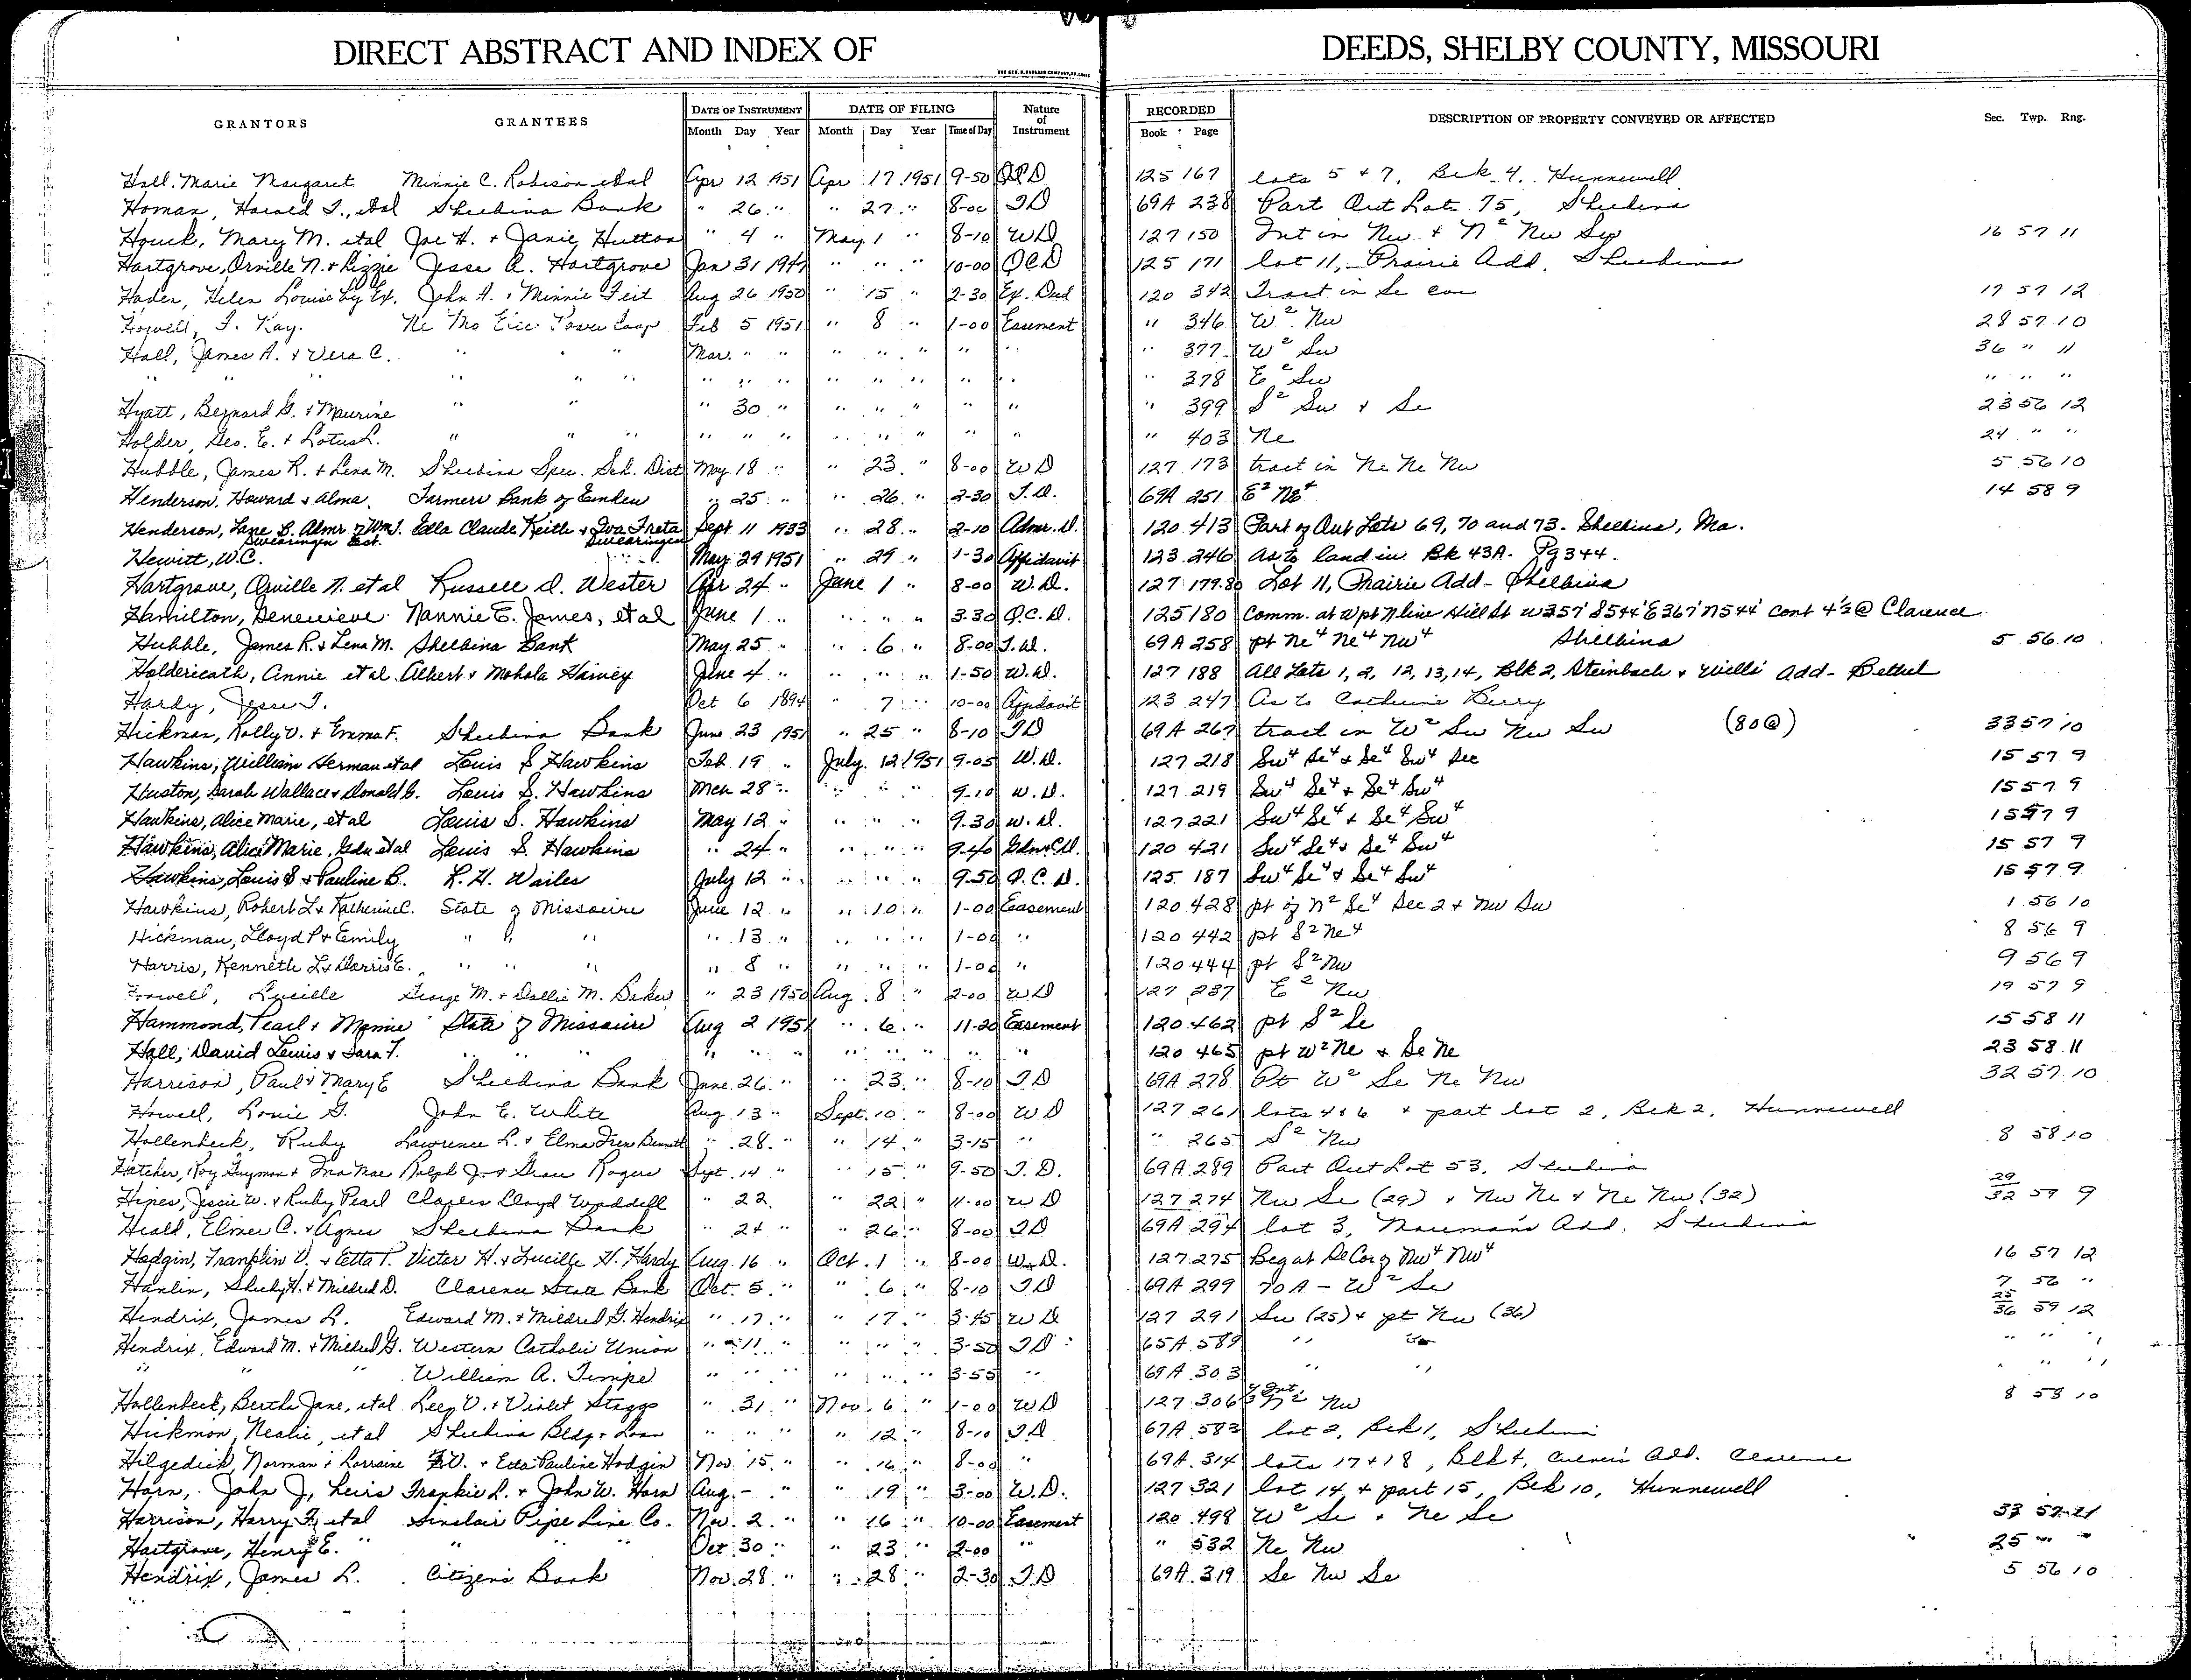 DIRECT ABSTRACT AND INDEX OF DEEDS, SHELBY COUNTY, MISSOURI
GRANTORS GRANTEES DATE OF INSTRUMENT DATE OF FILING Nature of Instrument RECORDED DESCRIPTION OF PROPERTY CONVEYED OR AFFECTED Sec. Twp. Rng.
Month Day Year Month Day Year Time of Day Book Page
Hall. Marie Margaret Minnie C. Robison etal Apr 12 1951 Apr 17 1951 9-50 QCD 125 167 lots 5 + 7, Blk 4, Hunnewell
Homan, Harold T., etal Shelbina Bank " 26 " " 27 " 8-00 TD 69A 238 Part Out Lot 75, Shelbina
Houck, Mary M. etal Joe H. + Janie Hutton " 4 " May 1 " 8-10 WD 127 150 Int in Nw + N2 Nw Sw 16 57 11
Hartgrove, Orville N. + Lizzie Jesse A. Hartgrove Jan 31 1947 " " " 10-00 QCD 125 171 lot 11, Prairie Add. Shelbina
Haden, Helen Louise by Ex. John A. + Minnie Feit Aug 26 1950 " 15 " 2-30 Ex. Deed 120 342 Tract in Se cor 17 57 12
Howell, T. Kay. Ne Mo Elec Power Coop Feb 5 1951 " 8 " 1-00 Easement " 346 W2 Nw 28 57 10
Hall, James A. + Vera C. " " " Mar. " " " " " " " " 377 W2 Sw 36 " 11
" " " " " " " " " " " " " " " " 378 E2 Sw " " "
Hyatt, Bernard G. + Maurine " " " 30 " " " " " " " 399 S2 Sw + Se 23 56 12
Holder, Geo. E. + Lotus L. " " " " " " " " " " " " 403 Ne 24 " "
Hubble, James R. + Lena M. Shelbina Spec. Sch. Dist May 18 " " 23 " 8-00 WD 127 173 tract in Ne Ne Nw 5 56 10
Henderson, Howard + Alma. Farmers Bank of Emden " 25 " " 26 " 2-30 T.D. 69A 251 E2 Ne4 14 58 9
Henderson, Lane B. Admr of Wm J. Edla Claude Keith + Iva Freta Sept 11 1933 " 28 " 2-10 Admr. D. 120 413 Part of Out Lots 69, 70 and 73. Shelbina, Mo.
Swearingen Est. Swearingen
Hewitt, W.C. May 29 1951 " 29 " 1-30 Affidavit 123 246 As to land in Bk 43A. Pg 344.
Hartgrove, Orville N. et al Russell D. Wester Apr 24 " June 1 " 8-00 W.D. 127 179.80 Lot 11, Prairie Add - Shelbina
Hamilton, Genevieve Nannie E. James, et al June 1 " " " " 3.30 Q.C.D. 125 180 Comm. at W pt N line Hill St W357' S544' E367' N544' cont 4½@ Clarence
Hubble, James R. + Lena M. Shelbina Bank May 25 " " 6 " 8-00 T.D. 69A 258 pt Ne4 Ne4 Nw4 Shelbina 5 56 10
Holdericath, Annie et al Albert + Mohala Harvey June 4 " " " " 1-50 W.D. 127 188 All Lots 1, 2, 12, 13, 14, Blk 2, Steinbach + Willi Add - Bethel
Hardy, Jesse T. Oct 6 1894 " 7 " 10-00 Affidavit 123 247 As to Catherine Berry
Hickman, Rolly V. + Emma F. Shelbina Bank June 23 1951 " 25 " 8-10 TD 69A 267 tract in W2 Sw Nw Sw (80@) 33 57 10
Hawkins, William Herman etal Louis S Hawkins Feb 19 " July 12 1951 9-05 W.D. 127 218 Sw4 Se4 + Se4 Sw4 Sec 15 57 9
Huston, Sarah Wallace + Donald G. Louis S. Hawkins Mch 28 " " " " 9-10 W.D. 127 219 Sw4 Se4 + Se4 Sw4 15 57 9
Hawkins, Alice Marie, et al Louis S. Hawkins May 12 " " " " 9-30 W.D. 127 221 Sw4 Se4 + Se4 Sw4 15 57 9
Hawkins, Alice Marie, Gdn etal Louis S. Hawkins " 24 " " " " 9-40 Gdn's D. 120 421 Sw4 Se4 + Se4 Sw4 15 57 9
Hawkins, Louis S + Pauline B. L. H. Wailes July 12 " " " " 9-50 Q.C.D. 125 187 Sw4 Se4 + Se4 Sw4 15 57 9
Hawkins, Robert L + Katherine C. State of Missouri June 12 " " 10 " 1-00 Easement 120 428 pt of N2 Se4 Sec 2 + Nw Sw 1 56 10
Hickman, Lloyd P + Emily " " " " 13 " " " " 1-00 " 120 442 pt S2 Ne4 8 56 9
Harris, Kenneth L + Dorris E. " " " " 8 " " " " 1-00 " 120 444 pt S2 Nw 9 56 9
Howell, Lucille George M. + Dollie M. Baker " 23 1950 Aug. 8 " 2-00 WD 127 237 E2 Nw 19 57 9
Hammond, Pearl + Mamie State of Missouri Aug 2 1951 " 6 " 11-20 Easement 120 462 pt S2 Se 15 58 11
Hall, David Lewis + Sara T. " " " " " " " " " " " 120 465 pt W2 Ne + Se Ne 23 58 11
Harrison, Paul + Mary E Shelbina Bank June 26 " " 23 " 8-10 TD 69A 278 Pt W2 Se Ne Nw 32 57 10
Howell, Lonie G. John E. White Aug 13 " Sept. 10 " 8-00 WD 127 261 lots 4 + 6 + part lot 2, Blk 2, Hunnewell
Hollenbeck, Ruby Lawrence L. + Elma Fern Bennett " 28 " " 14 " 3-15 " " 265 S2 Nw 8 58 10
Hatcher, Roy Guyman + Ina Mae Ralph J. + Grace Rogers Sept. 14 " " 15 " 9-50 T.D. 69A 289 Part Out Lot 53, Shelbina
Hipes, Jessie W. + Ruby Pearl Charles Lloyd Waddell " 22 " 22 " 11-00 WD 127 274 Nw Se (29) + Nw Ne + Ne Nw (32) 29/32 59 9
Heald, Elmer C. + Agnes Shelbina Bank " 24 " " 26 " 8-00 TD 69A 294 lot 3, Nauman's Add. Shelbina
Hodgin, Franklin V. + Etta P. Victor H. + Lucille H. Hardy Aug. 16 " Oct. 1 " 8-00 W.D. 127 275 Beg at Se Cor of Nw4 Nw4 16 57 12
Hanlin, Shelby H. + Mildred D. Clarence State Bank Oct. 5 " " 6 " 8-10 TD 69A 299 70A - W2 Se 7 56 "
Hendrix, James L. Edward M. + Mildred G. Hendrix " 17 " " 17 " 3-45 WD 127 291 Sw (25) + pt Nw (36) 25/36 59 12
Hendrix, Edward M. + Mildred G. Western Catholic Union " 11 " " " " 3-50 TD 65A 589 " " " " "
" " William A. Timpe " " " " " " 3-55 " 69A 303 " " " " "
Hollenbeck, Bertha Jane, etal Leep V. + Violet Staggs " 31 " Nov. 6 " 1-00 WD 127 306 N2 Nw 8 58 10
Hickmon, Nealie, et al Shelbina Bldg + Loan " " " " 12 " 8-10 TD 67A 583 lot 2, Blk 1, Shelbina
Hilgedick, Norman + Lorraine F.V. + Etta Pauline Hodgin Nov. 15 " " 16 " 8-00 " 69A 314 lots 17 + 18, Blk 4, Culver's Add. Clarence
Horn, John J, heirs Frankie L. + John W. Horn Aug. - " " 19 " 3-00 W.D. 127 321 lot 14 + part 15, Blk 10, Hunnewell
Harrison, Harry F, et al Sinclair Pipe Line Co. Nov. 2 " " 16 " 10-00 Easement 120 498 W2 Se + Ne Se 33 57 11
Hartgrove, Henry E. " " " " Oct 30 " " 23 " 2-00 " " 532 Ne Nw 25 " "
Hendrix, James L. Citizens Bank Nov. 28 " " 28 " 2-30 TD 69A 319 Se Nw Se 5 56 10